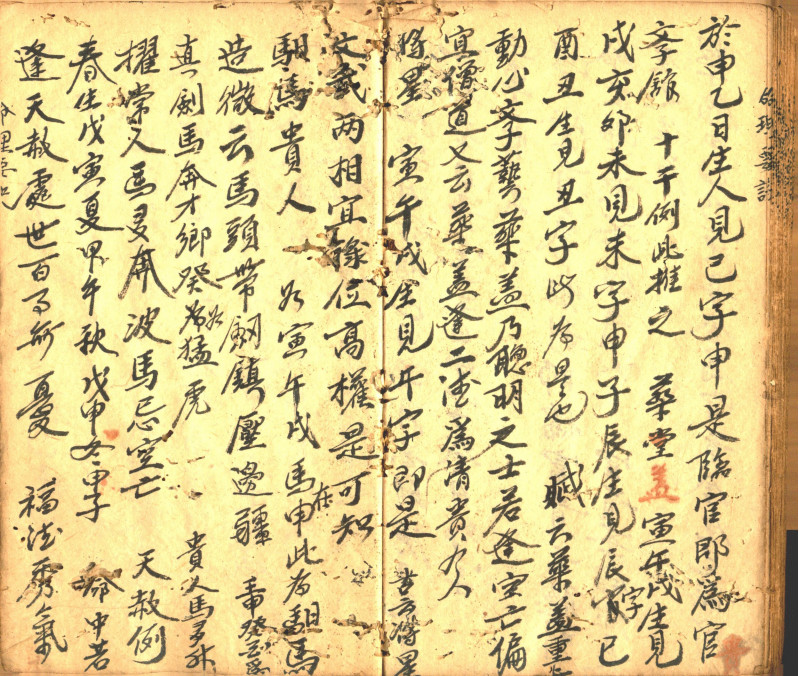 於申乙日生人見己字申是臨官即為官
孛舘 十干例此推之 華堂蓋 寅午戌生見
戌亥卯未見未字申子辰生見辰字巳
酉丑生見丑字此為是也 賦云華蓋重
動心孛藝華盖乃聰明之士若逢空亡偏
宜僧道又云華盖逢二德為清貴人
將星 寅午戌生見午字即是 書云將星
文武两相宜祿位高權是可知
馹馬貴人 如寅午戌馬在申此為馹馬
造微云馬頭帶劒鎮壓邊疆
真劍馬奔才鄉發如猛虎 貴人馬多升
擢常人馬多奔波馬忌空亡 天赦例
春生戊寅夏甲午秋戊申冬甲子 命中若
逢天赦處世百事無憂 福德秀氣
命理要